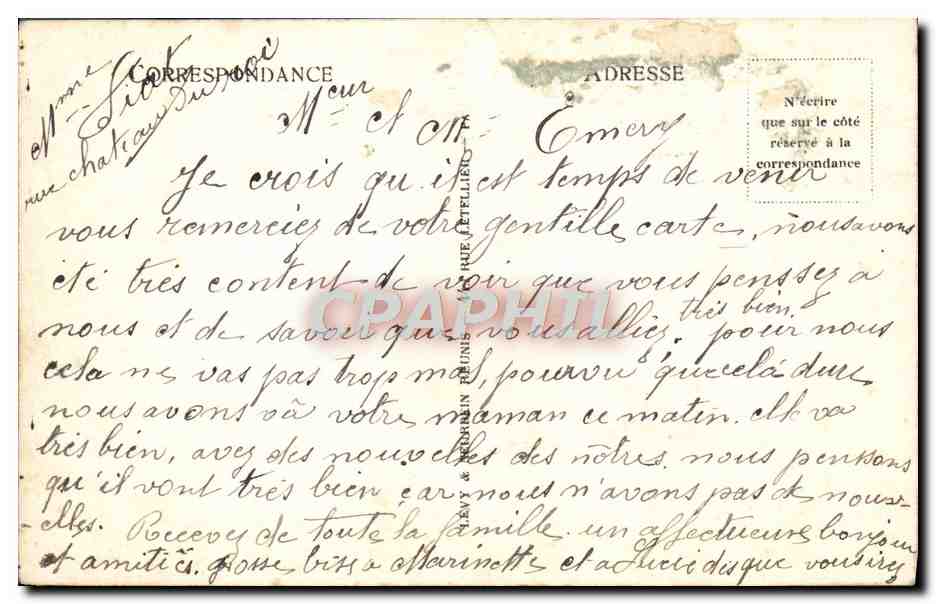 CORRESPONDANCE
ADRESSE
N'écrire
que sur le côté
réservé à la
correspondance
Mme
rue chateau Du roi
Meur et Me Emery
Je crois qu'il est temps de venir
vous remerciez de votre gentille carte, nous avons
été très content de voir que vous penssez à
nous et de savoir que vous alliez très bien. pour nous
cela ne vas pas trop mal, pourvu que cela dure
nous avons vâ votre maman ce matin. elle va
très bien, avez des nouvelles des nôtres. nous penssons
qu'il vont très bien car nous n'avons pas de nouv-
elles. Recevez de toute la famille un affectueuse bonjour
et amitiés. Grosse bise a Marinette et a Lucie dis que vous irez
LEVY & NEURDEIN REUNIS RUE LETELLIER
CPAPHIL